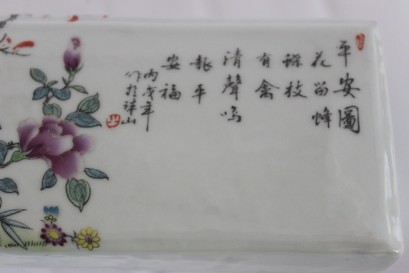 平安圖
花留蜂
踩枝
有禽
清聲鳴
報平
安福
丙戌年
作於珠山